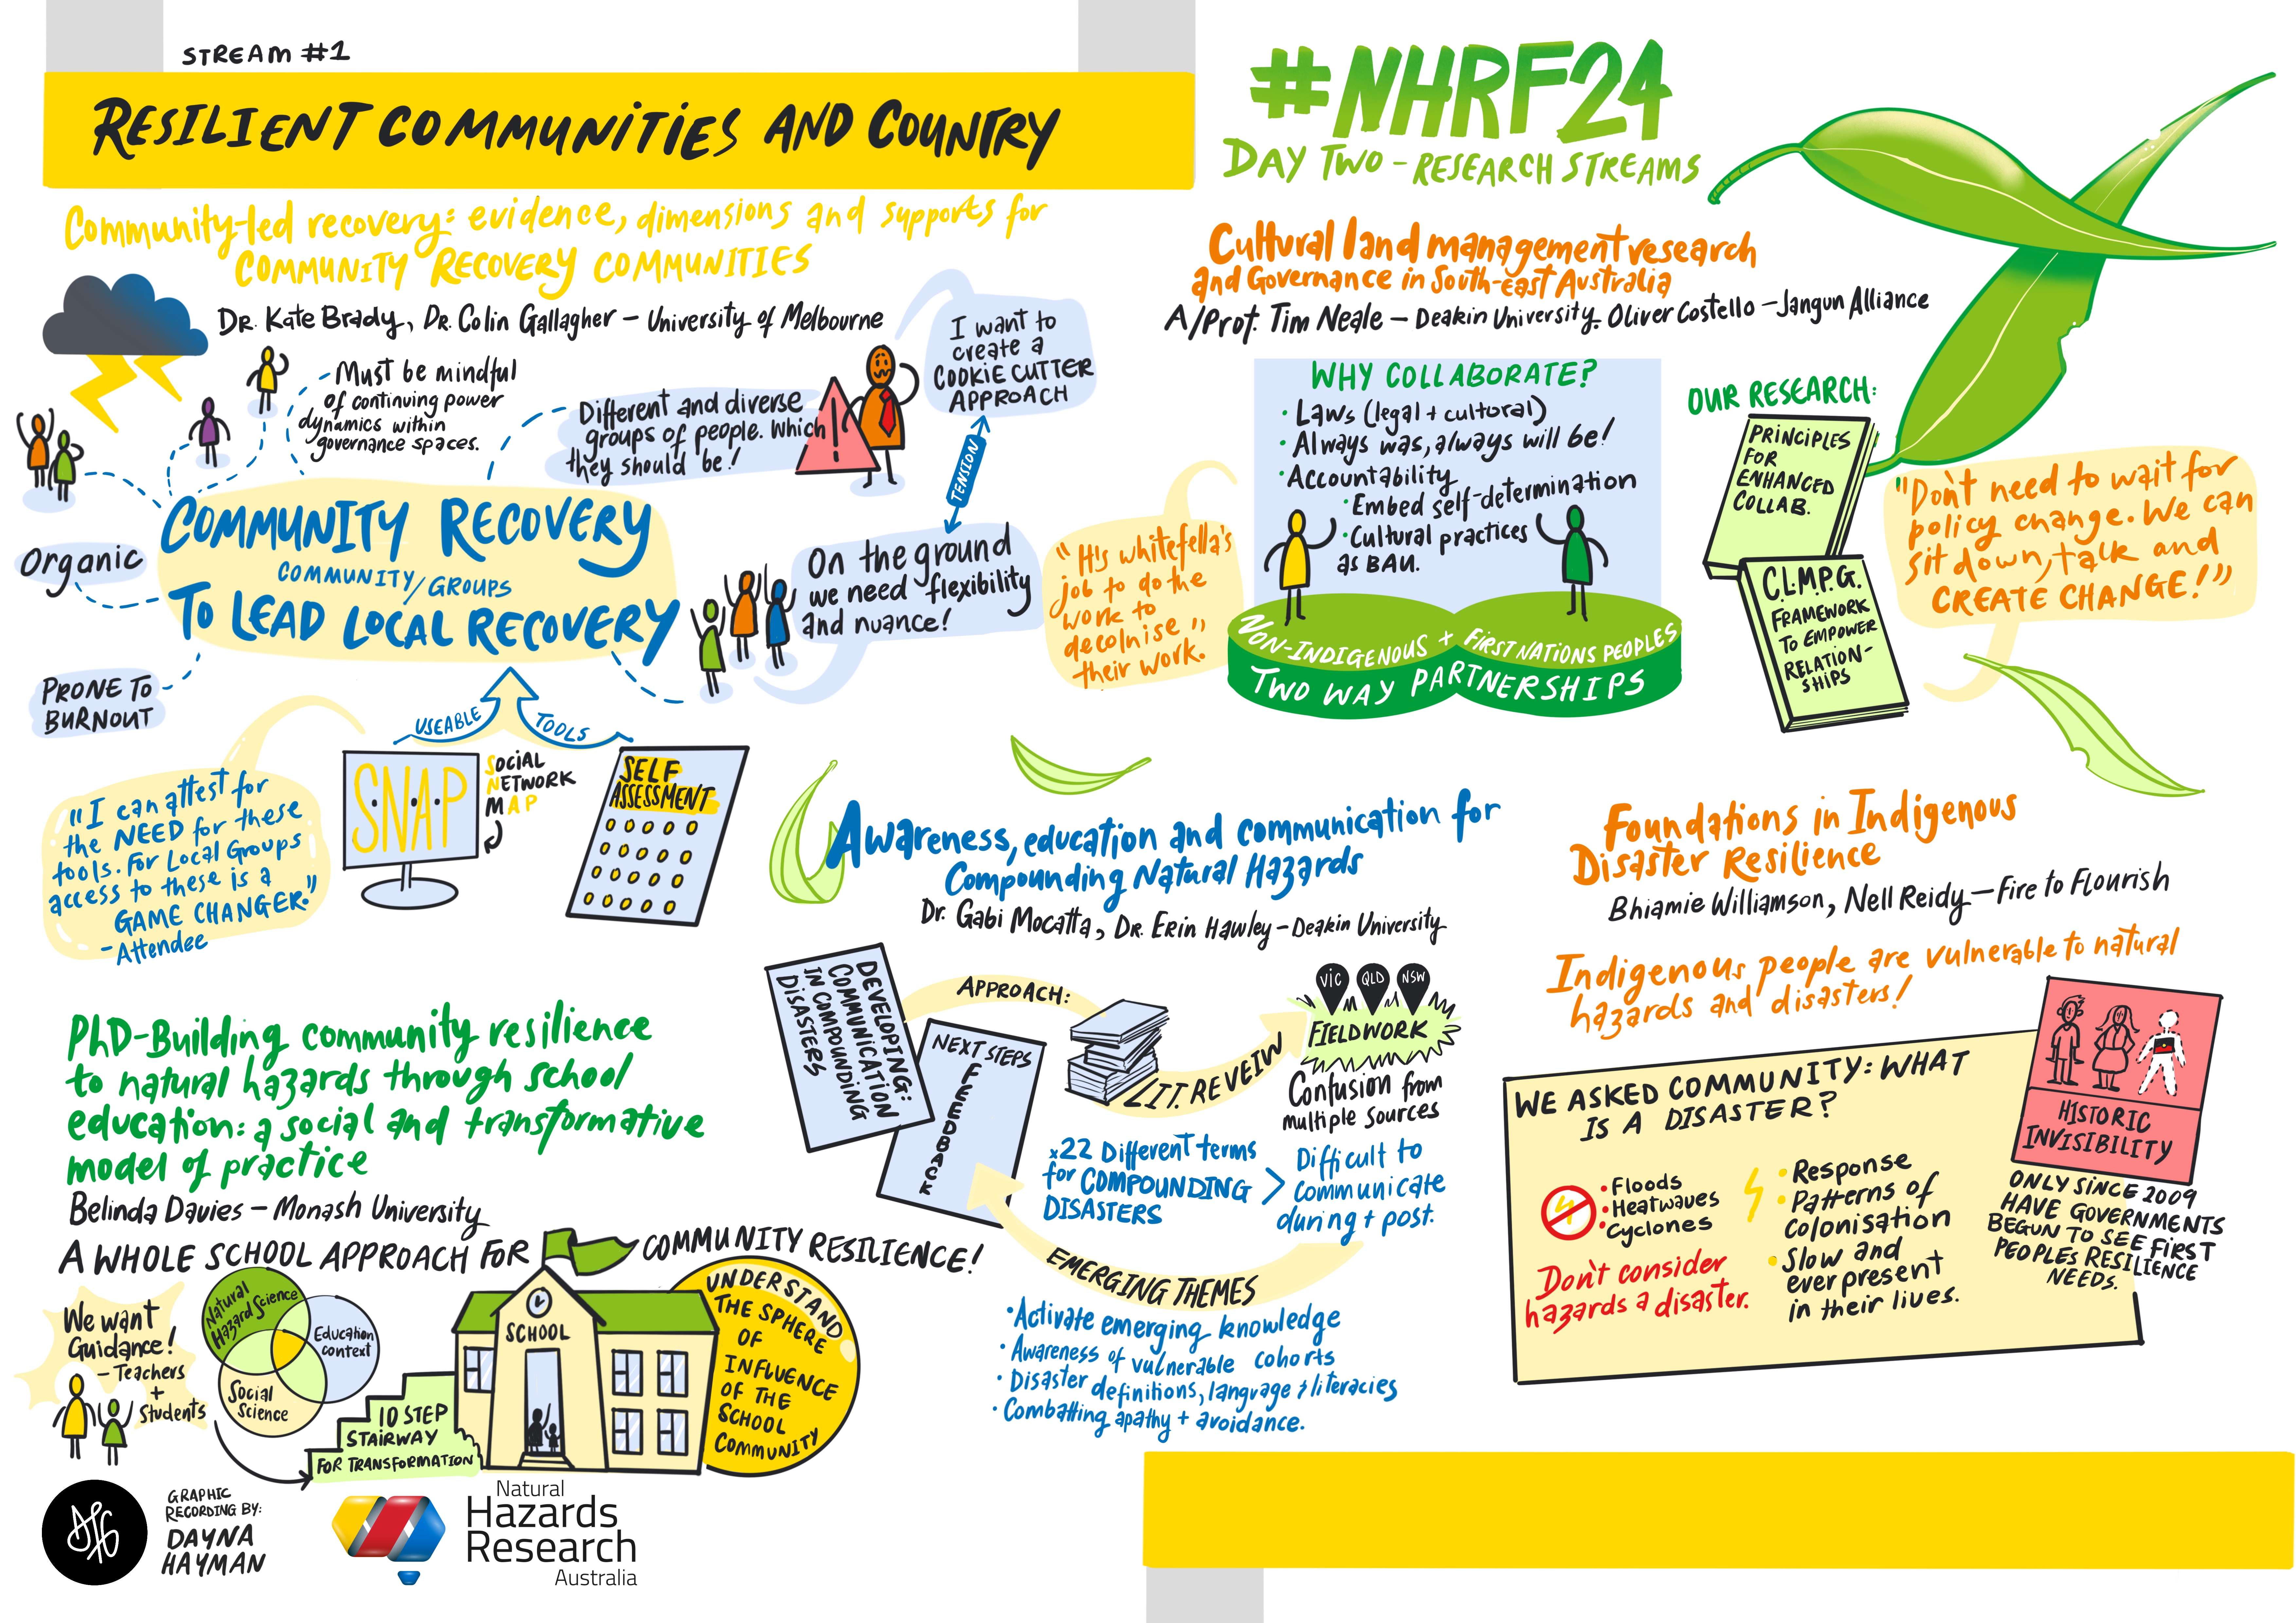 STREAM #1
RESILIENT COMMUNITIES AND COUNTRY
#NHRF24
DAY TWO - RESEARCH STREAMS
Community-led recovery: evidence, dimensions and supports for
COMMUNITY RECOVERY COMMUNITIES
DR. Kate Brady, DR. Colin Gallagher - University of Melbourne
Must be mindful
of continuing power
dynamics within
governance spaces.
Different and diverse
groups of people. Which
they should be!
!
I want to
create a
COOKIE CUTTER
APPROACH
TENSION
On the ground
we need flexibility
and nuance!
COMMUNITY RECOVERY
COMMUNITY/GROUPS
TO LEAD LOCAL RECOVERY
Organic
PRONE TO
BURNOUT
USEABLE TOOLS
S.N.A.P
SOCIAL
NETWORK
MAP
SELF
ASSESSMENT
"I can attest for
the NEED for these
tools. For Local Groups
access to these is a
GAME CHANGER."
- Attendee
Cultural land management research
and Governance in South-east Australia
A/Prof. Tim Neale - Deakin University. Oliver Costello - Jangun Alliance
WHY COLLABORATE?
• Laws (legal + cultoral)
• Always was, always will be!
• Accountability
• Embed self-determination
• Cultural practices
as BAU.
NON-INDIGENOUS + FIRST NATIONS PEOPLES
TWO WAY PARTNERSHIPS
"It's whitefella's
job to do the
work to
decolnise"
their work.
OUR RESEARCH:
PRINCIPLES
FOR
ENHANCED
COLLAB.
C.L.M.P.G.
FRAMEWORK
TO EMPOWER
RELATION-
SHIPS
"Don't need to wait for
policy change. We can
sit down, talk and
CREATE CHANGE!"
Awareness, education and communication for
Compounding Natural Hazards
Dr. Gabi Mocatta, Dr. Erin Hawley - Deakin University
DEVELOPING:
COMMUNICATION
IN COMPOUNDING
DISASTERS
NEXT STEPS
FEEDBACK
APPROACH:
LIT. REVEIW
VIC QLD NSW
FIELDWORK
Confusion from
multiple sources
x22 Different terms
for COMPOUNDING
DISASTERS
>
Difficult to
communicate
during + post.
EMERGING THEMES
• Activate emerging knowledge
• Awareness of vulnerable cohorts
• Disaster definitions, language & literacies
• Combatting apathy + avoidance.
Foundations in Indigenous
Disaster Resilience
Bhiamie Williamson, Nell Reidy - Fire to Flourish
Indigenous people are vulnerable to natural
hazards and disasters!
WE ASKED COMMUNITY: WHAT
IS A DISASTER?
• Floods
• Heatwaves
• Cyclones
Don't consider
hazards a disaster.
• Response
• Patterns of
colonisation
• Slow and
ever present
in their lives.
HISTORIC
INVISIBILITY
ONLY SINCE 2009
HAVE GOVERNMENTS
BEGUN TO SEE FIRST
PEOPLES RESILIENCE
NEEDS.
PhD-Building community resilience
to natural hazards through school
education: a social and transformative
model of practice
Belinda Davies - Monash University
A WHOLE SCHOOL APPROACH FOR COMMUNITY RESILIENCE!
We want
Guidance!
- Teachers
+
Students
Natural
Hazard Science
Education
context
Social
Science
10 STEP
STAIRWAY
FOR TRANSFORMATION
SCHOOL
UNDERSTAND
THE SPHERE
OF
INFLUENCE
OF THE
SCHOOL
COMMUNITY
GRAPHIC
RECORDING BY:
DAYNA
HAYMAN
Natural
Hazards
Research
Australia